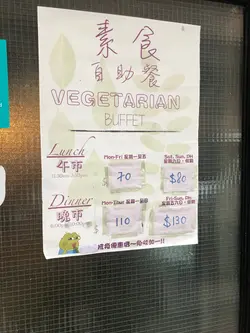 素食
自助餐
VEGETARIAN
BUFFET
Lunch
午市
Mon-Fri 星期一至五
70
Sat, Sun, PH
$80
Dinner
晚市
Mon-Thur 星期一至四
110
Fri-Sun, PH
$130